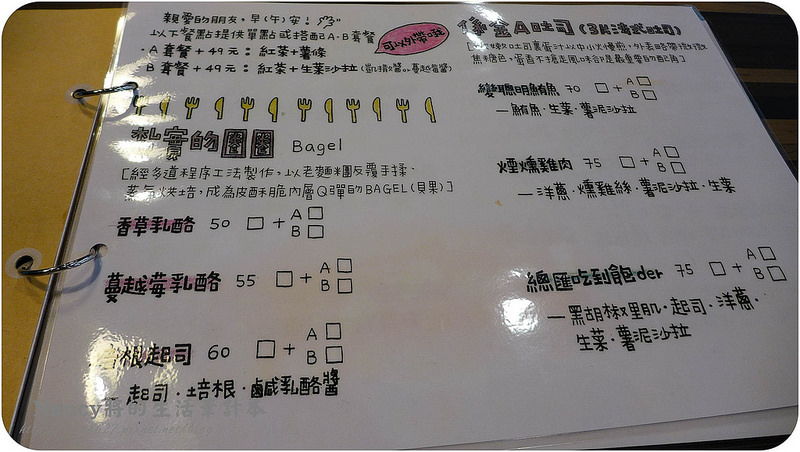 親愛的朋友，早(午)安！
以下餐點提供單點或搭配BA·B套餐
·A套餐+49元：紅茶+薯條
B套餐+49元：紅茶+生菜沙拉(凱撒醬or蔓越莓醬)
可以外帶哦
紮實的圈圈 Bagel
[經多道程序工法製作，以老麵糰反覆手揉、
蒸氣烘培，成為皮酥脆內層Q彈的BAGEL(貝果)]
香草乳酪 50 □+A□
B□
蔓越莓乳酪 55 □+A□
B□
培根起司 60 □+A□
B□
起司·培根·鹹乳酪醬
A吐司(法式吐司)
變聰明鮪魚 70 □+A□
B□
—鮪魚·生菜·薯泥沙拉
煙燻雞肉 75 □+A□
B□
—洋蔥·燻雞絲·薯泥沙拉·生菜
總匯吃到飽der 75 □+A□
B□
—黑胡椒里肌·起司·洋蔥·
生菜·薯泥沙拉
將的生活筆計本